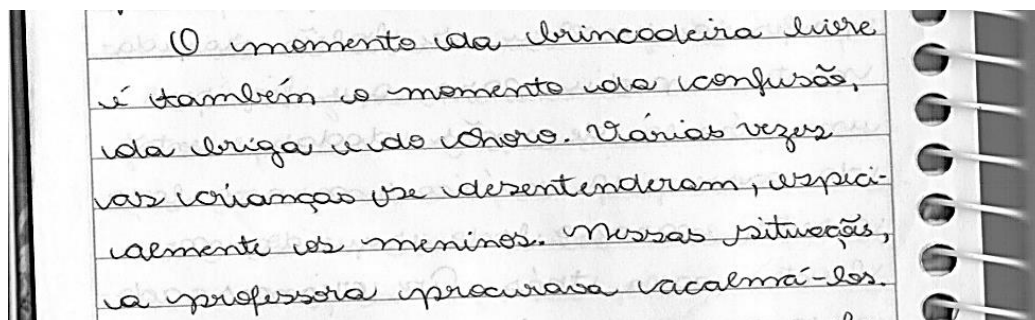 O momento da brincadeira livre
é também o momento da confusão,
da briga e do choro. Várias vezes
as crianças se desentenderam, espici-
almente os meninos. Nessas situações,
a professora procurava acalmá-los.